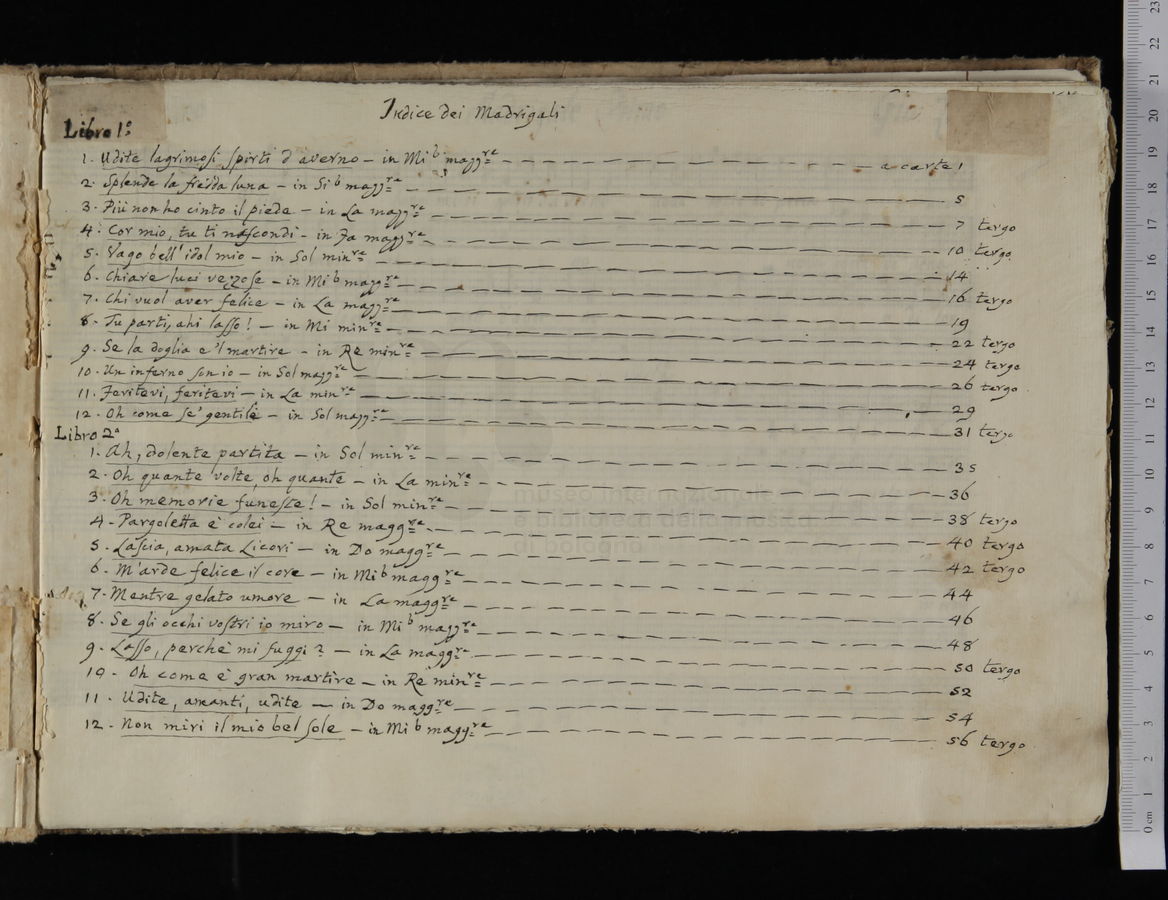 Indice dei Madrigali
Libro 1º
1. Udite lagrimosi spirti d averno – in Mi b magg.re a carte 1
2. Splende la fredda luna – in Si b magg.re 5
3. Più non ho cinto il piede – in La magg.re 7 tergo
4. Cor mio, tu ti nascondi – in Fa magg.re 10 tergo
5. Vago bell' idol mio – in Sol min.re 14
6. Chiare luci vezzose – in Mi b magg.re 16 tergo
7. Chi vuol aver felice – in La magg.re 19
8. Tu parti, ahi lasso! – in Mi min.re 22 tergo
9. Se la doglia e 'l martire – in Re min.re 24 tergo
10. Un inferno son io – in Sol magg.re 26 tergo
11. Feritevi, feritevi – in La min.re 29
12. Oh come se' gentile – in Sol magg.re 31 tergo
Libro 2º
1. Ah, dolente partita – in Sol min.re 35
2. Oh quante volte, oh quante – in La min.re 36
3. Oh memorie funeste! – in Sol min.re 38 tergo
4. Pargoletta è colei – in Re magg.re 40 tergo
5. Lascia, amata Licori – in Do magg.re 42 tergo
6. M'arde felice il core – in Mi b magg.re 44
7. Mentre gelato umore – in La magg.re 46
8. Se gli occhi vostri io miro – in Mi b magg.re 48
9. Lasso, perchè mi fuggi? – in La magg.re 50 tergo
10. Oh come è gran martire – in Re min.re 52
11. Udite, amanti, udite – in Do magg.re 54
12. Non miri il mio bel sole – in Mi b magg.re 56 tergo
museo internazionale
e biblioteca della musica
di bologna
0 cm 1 2 3 4 5 6 7 8 9 10 11 12 13 14 15 16 17 18 19 20 21 22 23